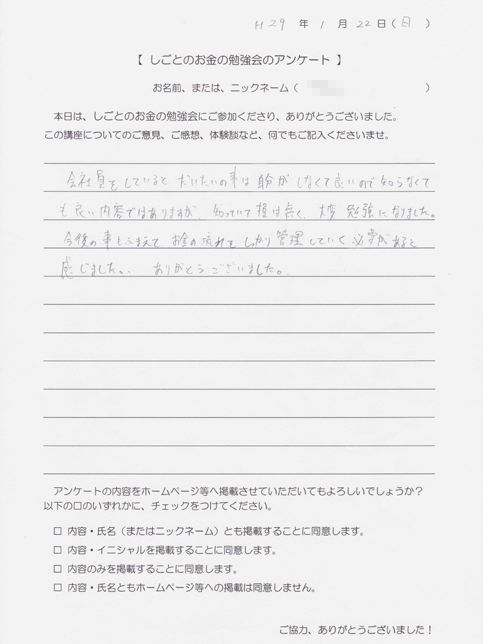 H29 年 1 月 22 日 ( 日 )
【 しごとのお金の勉強会のアンケート 】
お名前、または、ニックネーム ( )
本日は、しごとのお金の勉強会にご参加くださり、ありがとうございました。
この講座についてのご意見、ご感想、体験談など、何でもご記入くださいませ。
会社員をしていると だいたいの事は 自分が しなくて良いので 知らなくて
も良い内容ではありますが、知っていて損は無く、大変 勉強になりました。
今後の事もふまえて お金の流れをしっかり管理していく必要があると
感じました。 ありがとうございました。
アンケートの内容をホームページ等へ掲載させていただいてもよろしいでしょうか？
以下の口のいずれかに、チェックをつけてください。
□ 内容・氏名（またはニックネーム）とも掲載することに同意します。
□ 内容・イニシャルを掲載することに同意します。
□ 内容のみを掲載することに同意します。
□ 内容・氏名ともホームページ等への掲載は同意しません。
ご協力、ありがとうございました！